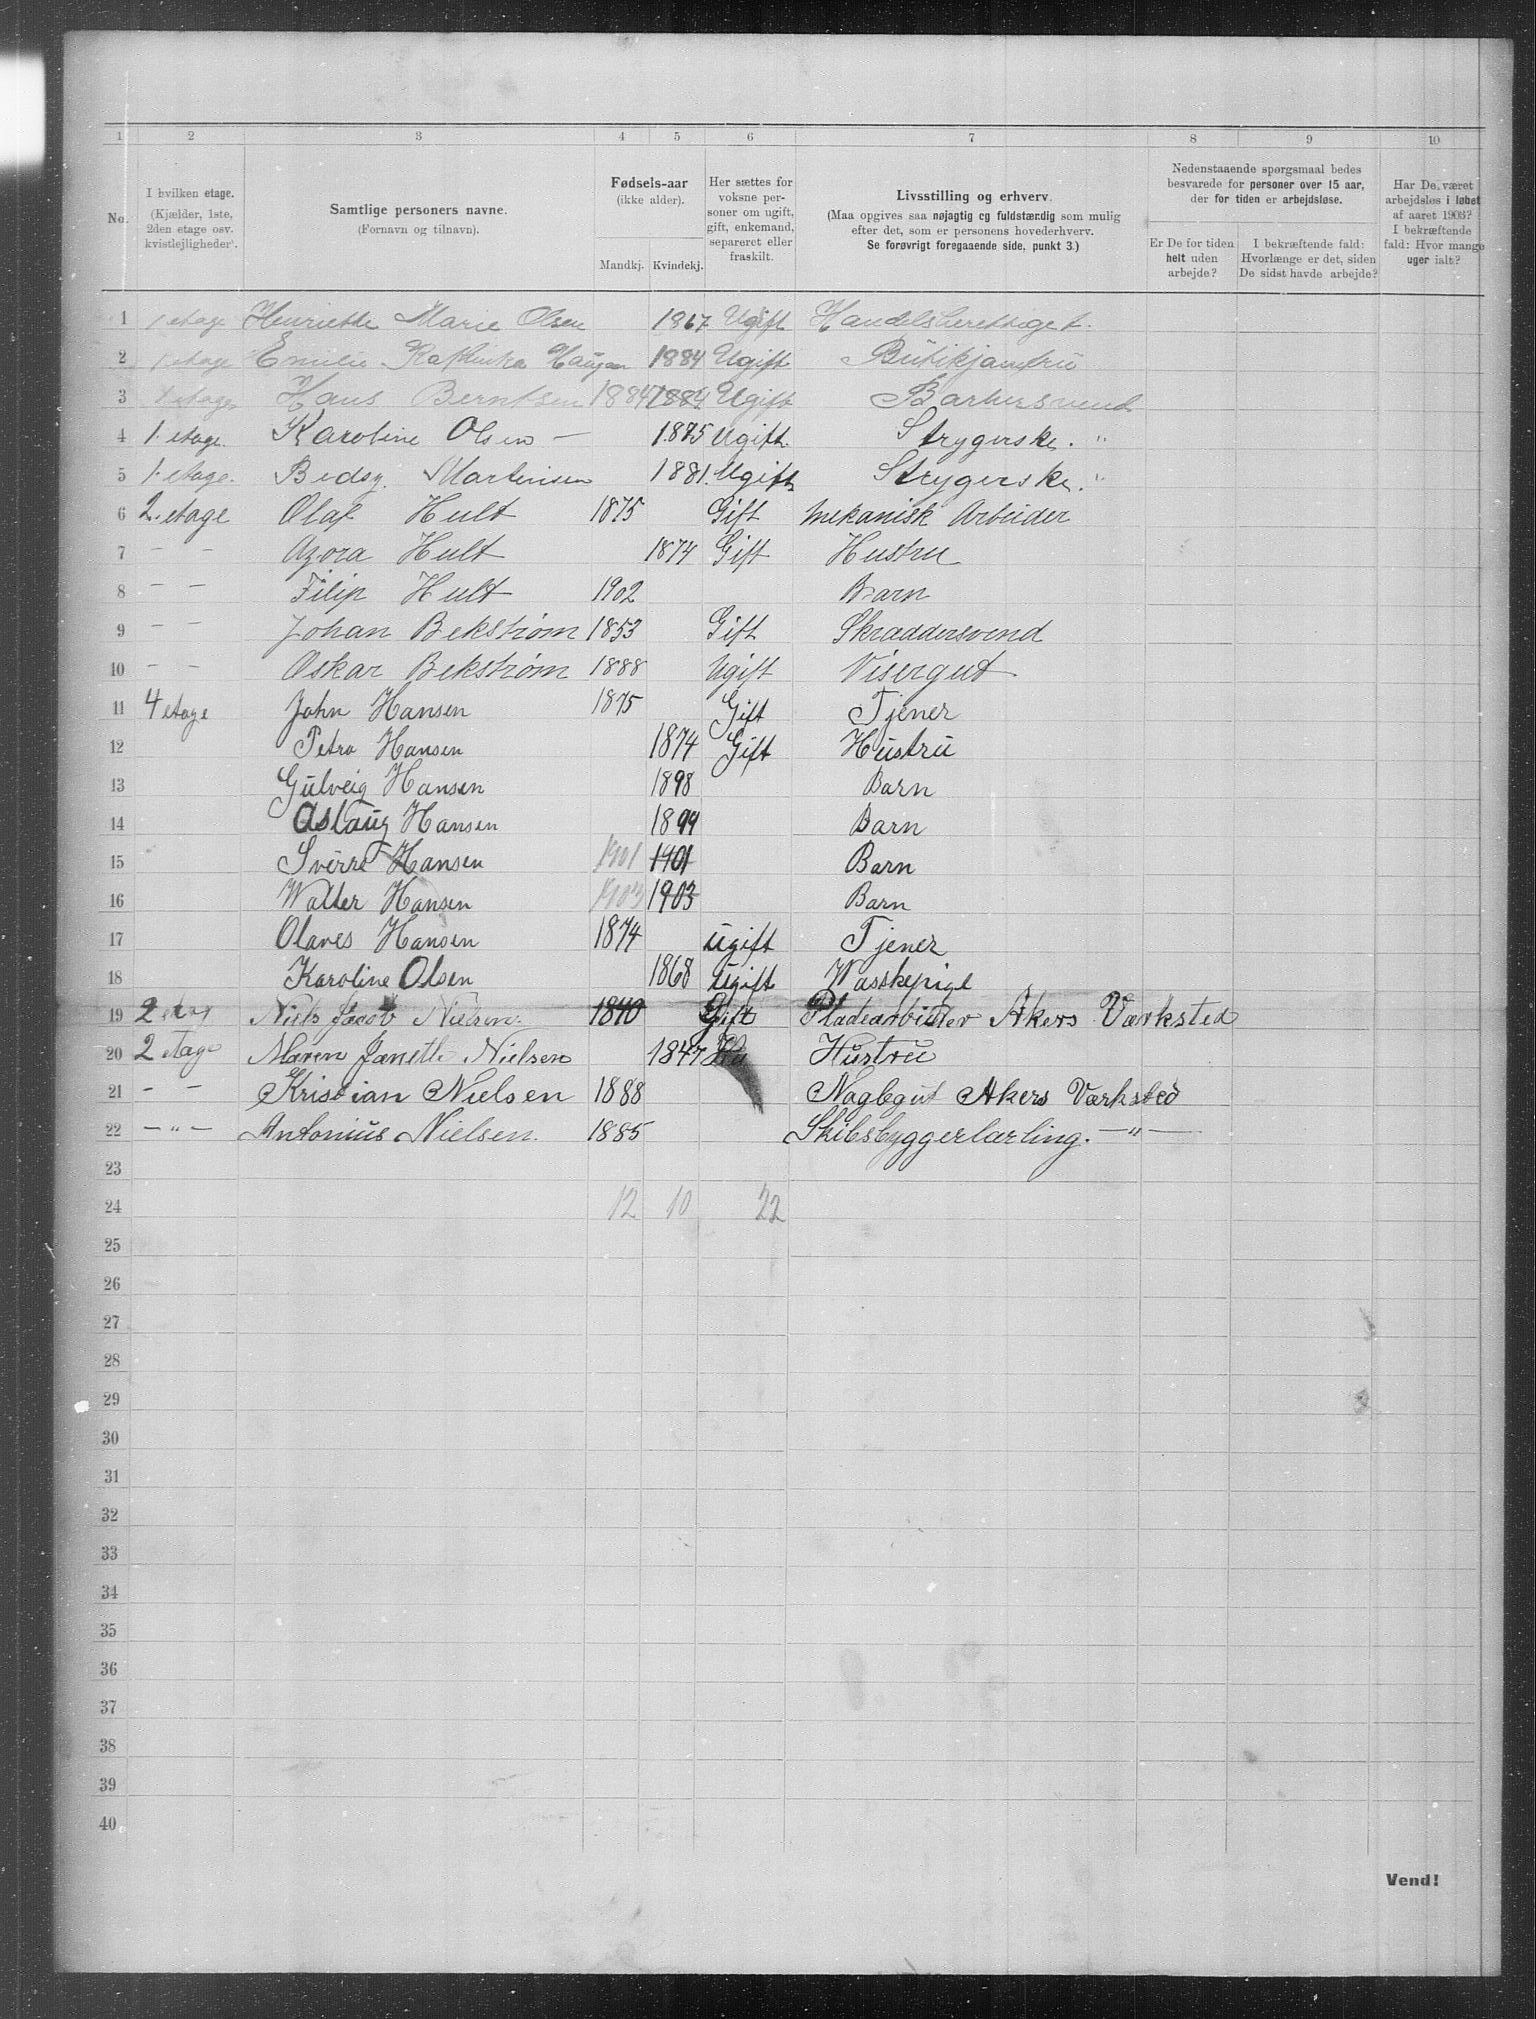 1 2 3 4 5 6 7 8 9 10
No.
I hvilken etage.
(Kjælder, 1ste,
2den etage osv.
kvistlejligheder).
Samtlige personers navne.
(Fornavn og tilnavn).
Fødsels-aar
(ikke alder).
Mandkj. Kvindekj.
Her sættes for
voksne per-
soner om ugift,
gift, enkemand,
separeret eller
fraskilt.
Livsstilling og erhverv.
(Maa opgives saa nøjagtig og fuldstærdig som mulig
efter det, som er personens hovederhverv.
Se forøvrigt foregaaende side, punkt 3.)
Nedenstaaende spørgsmaal bedes
besvarede for personer over 15 aar,
der for tiden er arbejdsløse.
Er De for tiden
helt uden
arbejde?
I bekræftende fald:
Hvorlænge er det, siden
De sidst havde arbejde?
Har De været
arbejdsløs i løbet
af aaret 1903?
I bekræftende
fald: Hvor mange
uger ialt?
1 1 etage Henriette Marie Olsen 1867 Ugift Handelsberettiget.
2 1 etage Emilie Kathinka Haugen 1884 Ugift Butikjomfru
3 1 etage Hans Berntsen 1884 1884 Ugift Barbersvend
4 1. etage. Karoline Olsen — 1875 Ugift. Strygerske. "
5 1. etage. Bedsy. Martinsen 1881. Ugift Strygerske. "
6 2. etage Olaf Hult 1875 Gift Mekanisk Arbeider
7 — — Azora Hult 1874 Gift Hustru
8 — — Filip Hult 1902 Barn
9 — — Johan Bekstrøm 1853 Gift Skraddersvend
10 — — Oskar Bekstrøm 1888 Ugift Visergut
11 4 etage John Hansen 1875 Gift Tjener
12 Petra Hansen 1874 Gift Hustru
13 Gulveig Hansen 1898 Barn
14 Aslaug Hansen 1899 Barn
15 Sverre Hansen 1901 1901 Barn
16 Walter Hansen 1903 1903 Barn
17 Olaves Hansen 1874 ugift Tjener
18 Karoline Olsen 1868 ugift Wasskepige
19 2 etag Niels Jacob Nielsen. 1840 Gift Pladearbider Akers Værksted
20 2 etage Maren Janette Nielsen 1847 Hustru
21 — — Kristian Nielsen 1888 Naglegut Akers Værksted
22 — " — Antonius Nielsen. 1885 Skibsbyggerlærling. — " —
23
24 12 10 22
25
26
27
28
29
30
31
32
33
34
35
36
37
38
39
40
Vend!